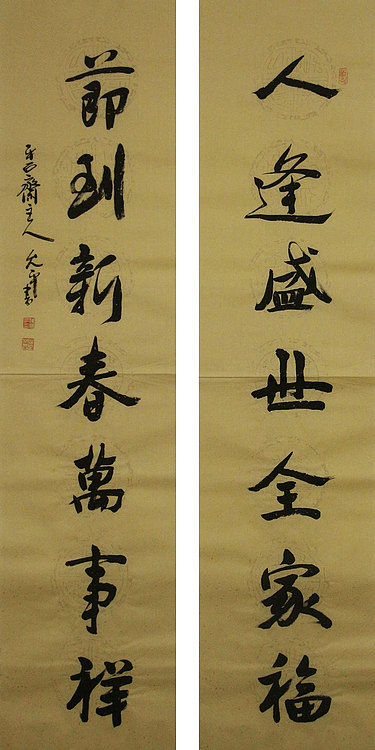 人逢盛世全家福
節到新春萬事祥
齋主人